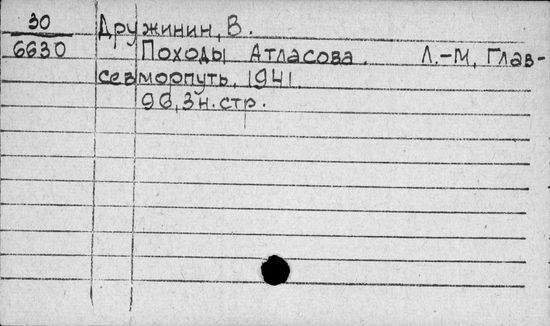 30 Дружинин, В.
6630 Походы Атласова. Л.-М, Глав-
севморпуть, 1941.
96,3н.стр.